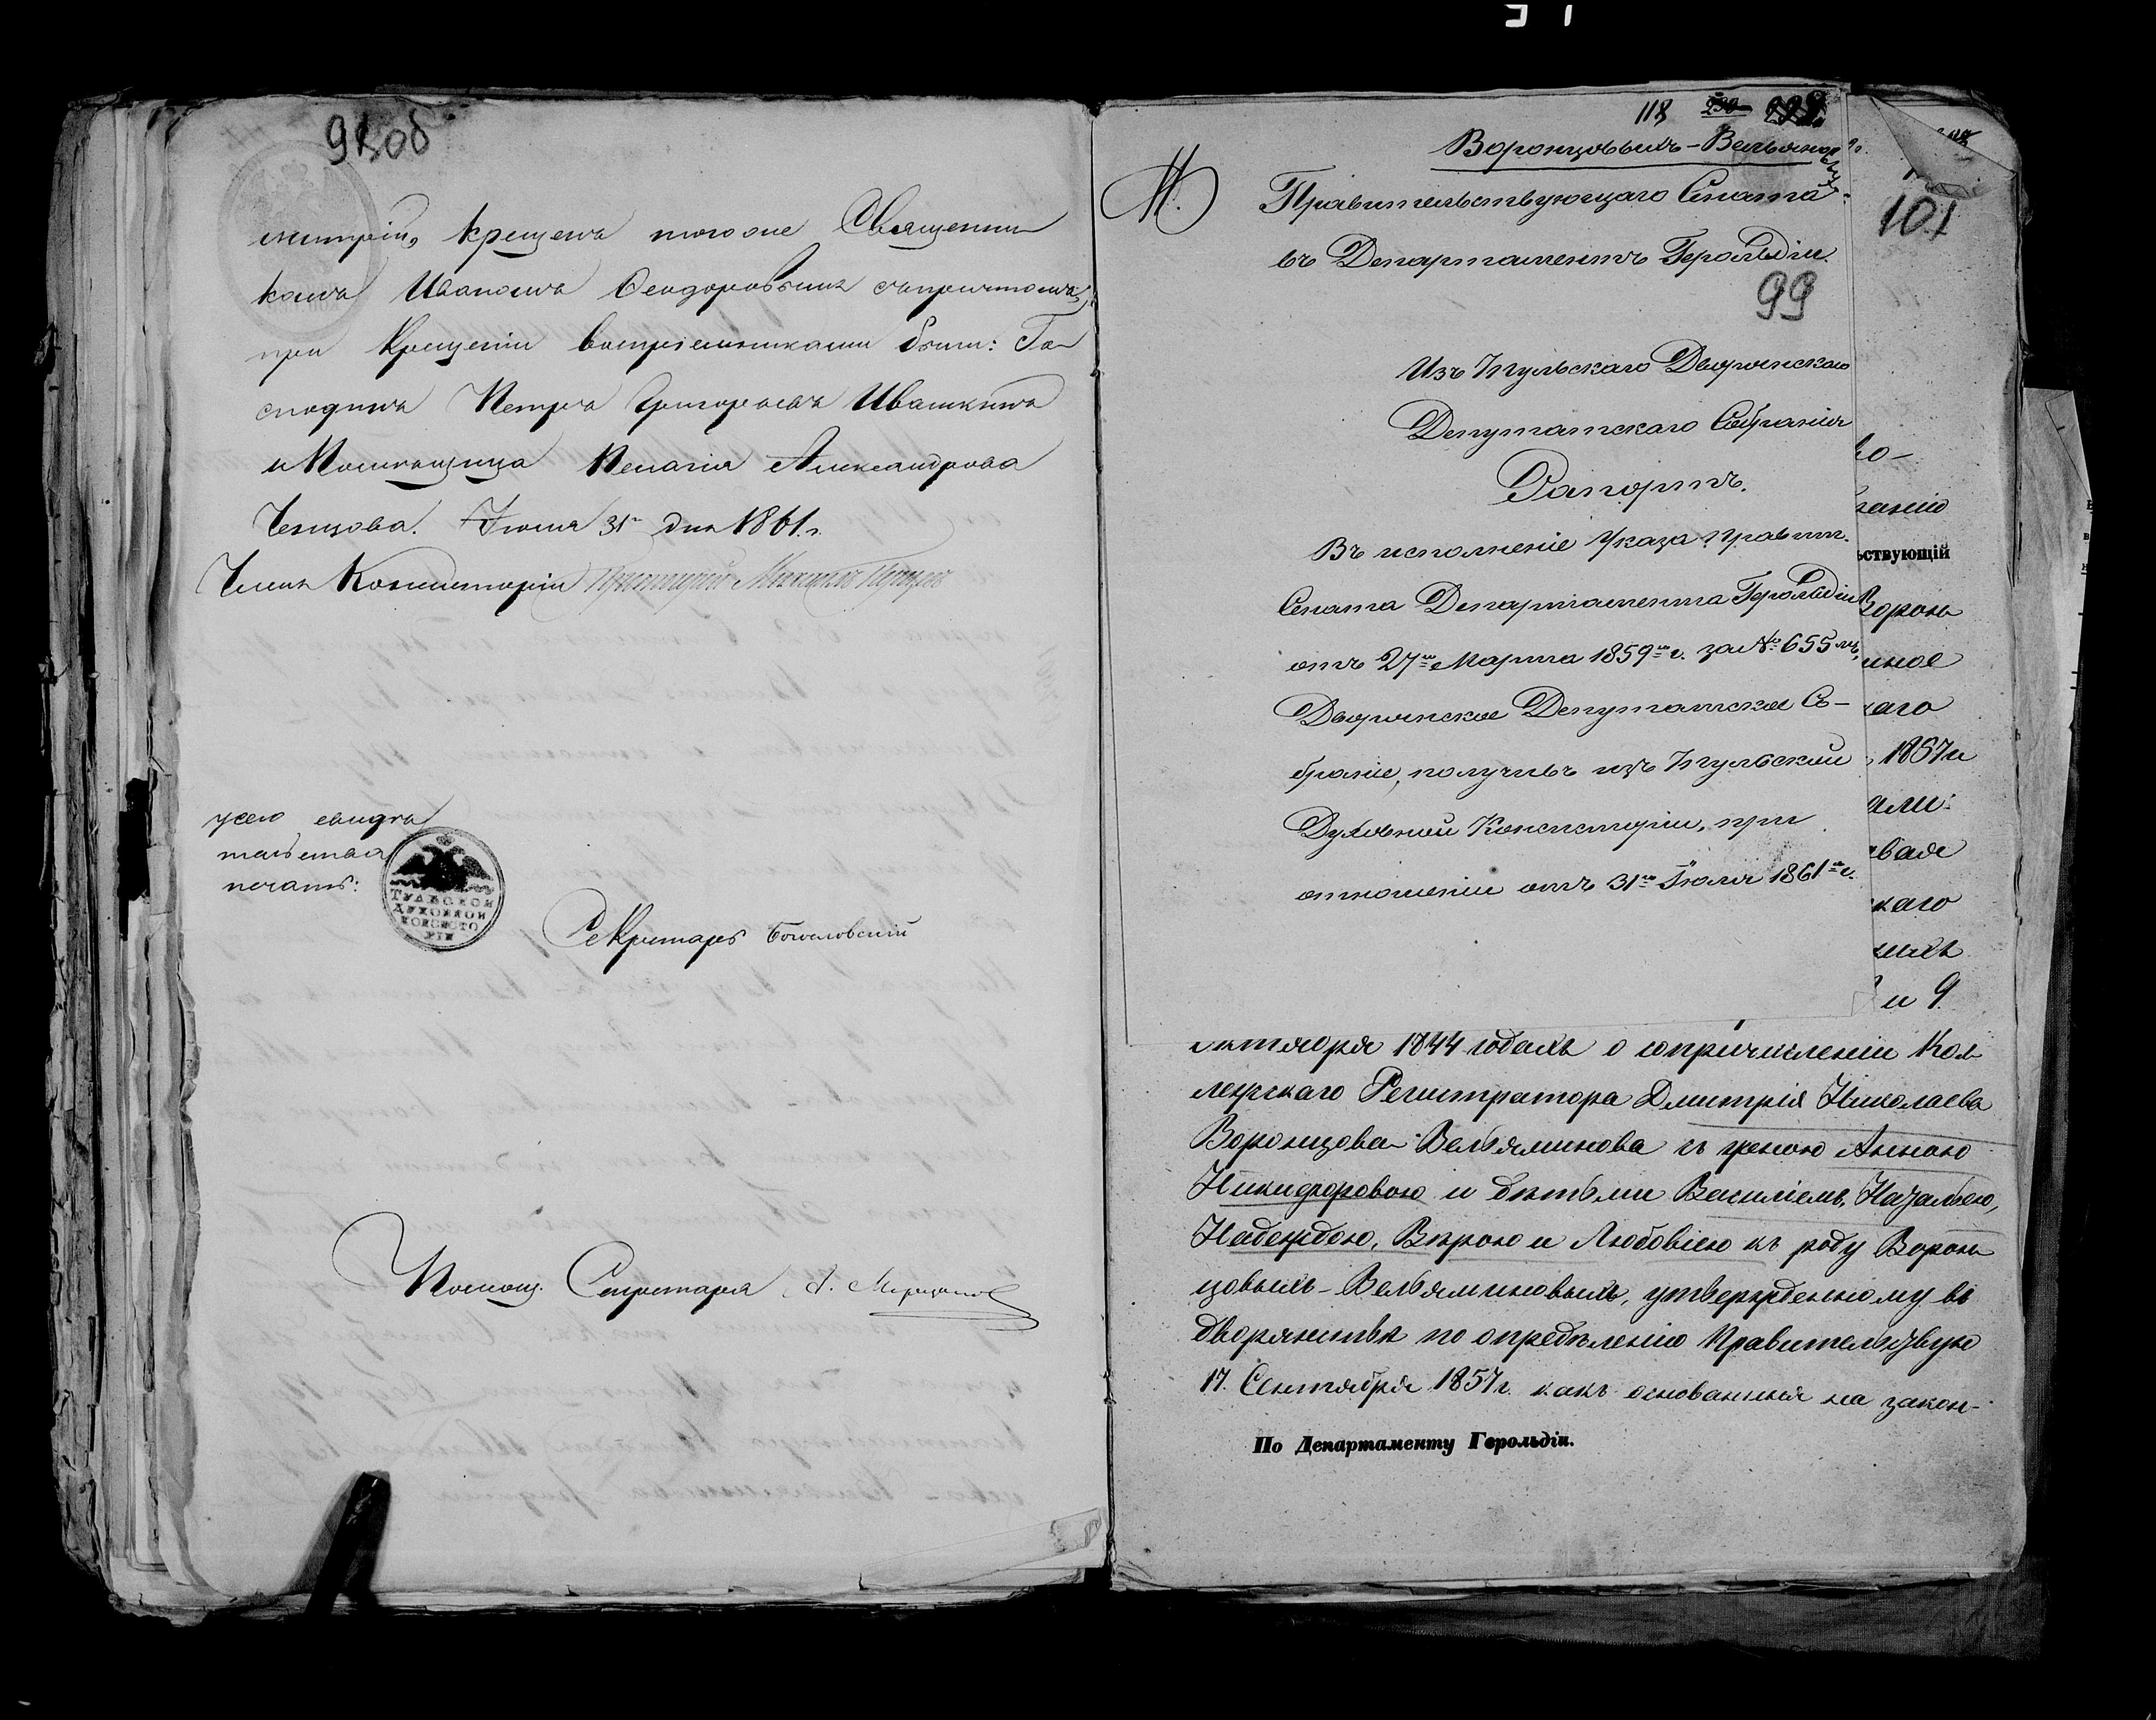 98об
митрій, крещенъ того же Священни
комъ Иваномъ Ѳеодоровымъ съ причтомъ,
при Крещеніи воспріемниками были: Го
сподинъ Петръ Григорьевъ Ивашкинъ
и Помѣщица Пелагія Александрова
Чепцова. Іюля 31го дня 1861 г.
Членъ Консисторіи Протоіерей Михаилъ
у сего свидѣ
тельства
печать:
ТУЛЬСКОЙ
ДУХОВНОЙ
КОНСИСТО
РІИ
Секретарь Богословскій
Помощ. Секретаря А.
118
Воронцовыхъ-Вельяминовыхъ
Правительствующаго Сената
въ Департаментъ Герольдіи.
99
Изъ Тульскаго Дворянскаго
Депутатскаго Собранія
Рапортъ.
Въ исполненіе Указа Правит.
Сената Департамента Герольдіи,
отъ 27го Марта 1859го г. за № 655мъ,
Дворянское Депутатское Со-
браніе, получивъ изъ Тульской
Духовной Консисторіи, при
отношеніи отъ 31го Іюля 1861го г.
101
во-
ранію
ьствующій
Ворон
ное
каго
1857 и
али:
вая
каго
ихъ
и 9
октября 1844 годахъ о сопричисленіи Кол
лежскаго Регистратора Дмитрія Николаева
Воронцова-Вельяминова съ женою Анною
Никифоровою и дѣтьми Василіемъ, Натальею,
Надеждою, Вѣрою и Любовію къ роду Ворон
цовыхъ-Вельяминовыхъ, утвержденному въ
дворянствѣ по опредѣленію Правительствую
17. Сентября 1857 г. какъ основанныя на закон-
По Департаменту Герольдіи.